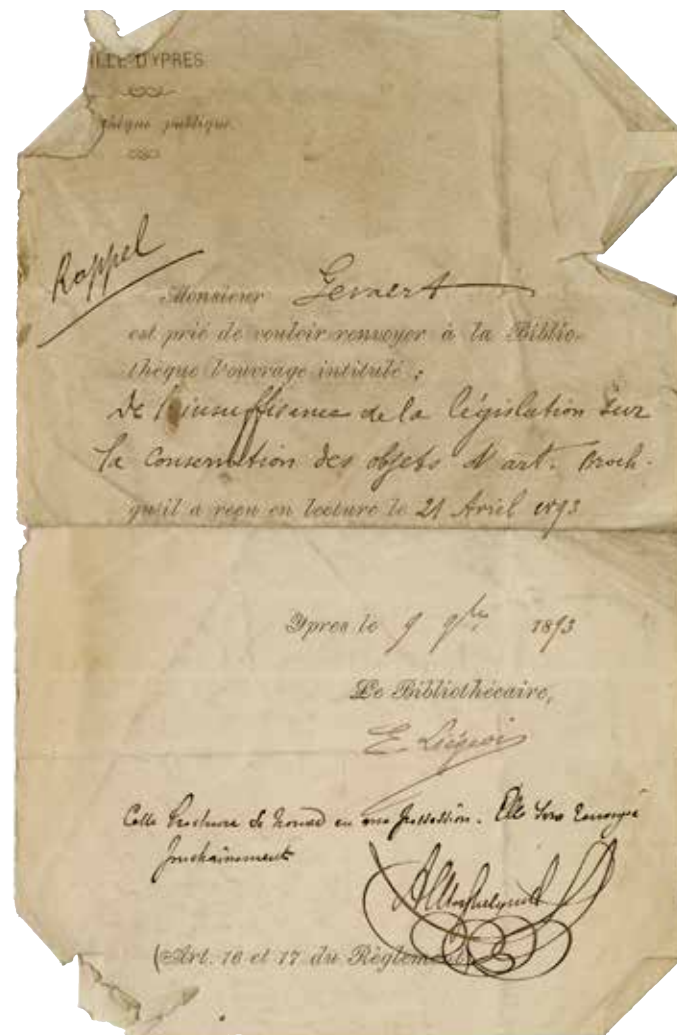 ILLE D'YPRES
thèque publique.
Rappel
Monsieur Gevaert
est prié de vouloir renvoyer à la Biblio-
thèque l'ouvrage intitulé :
De l'insuffisance de la législation sur
la conservation des objets d'art. Broch.
qu'il a reçu en lecture le 21 Avril 1893
Ypres le 9 9bre 1893
Le Bibliothécaire,
E. Liégeois
Cette brochure se trouve en ma possession. Elle sera renvoyée
prochainement
(Art. 16 et 17 du Règlement)